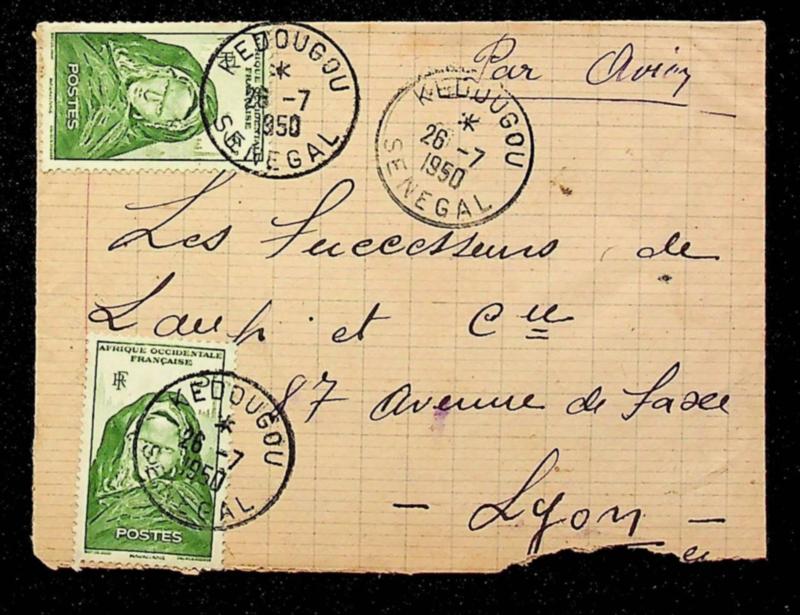 Par Avion
POSTES
AFRIQUE OCCIDENTALE
FRANÇAISE
RF
KEDOUGOU
26 -7
1950
SENEGAL
KEDOUGOU
26 -7
1950
SENEGAL
Les Successeurs de
et Cie
87 Avenue de Saxe
- Lyon -
AFRIQUE OCCIDENTALE
FRANÇAISE
RF
POSTES
KEDOUGOU
26 -7
1950
SENEGAL